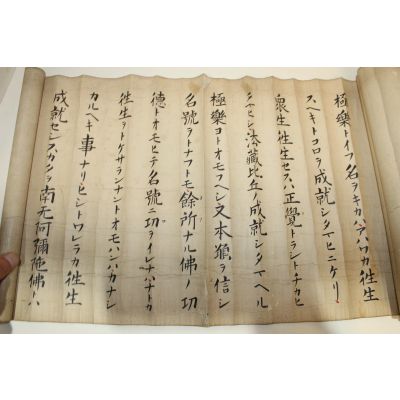 極樂トイフ名ヲキカハアハワカ往生
スヘキトコロヲ成就シタマヒニケリ
衆生往生セスハ正覺トラシトチカヒ
タマヒシ法藏比丘ノ成就シタマヘル
極樂ヨトオモフヘシ又本願ヲ信シ
名號ヲトナフトモ餘所ナル佛ノ功
德トオモヒテ名號ニ功ヲイレナハナトカ
往生ヲトケサランナントオモハンハカナシ
カルヘキ事ナリヒシトワレラカ往生
成就セシスカタヲ南无阿彌陀佛トハ